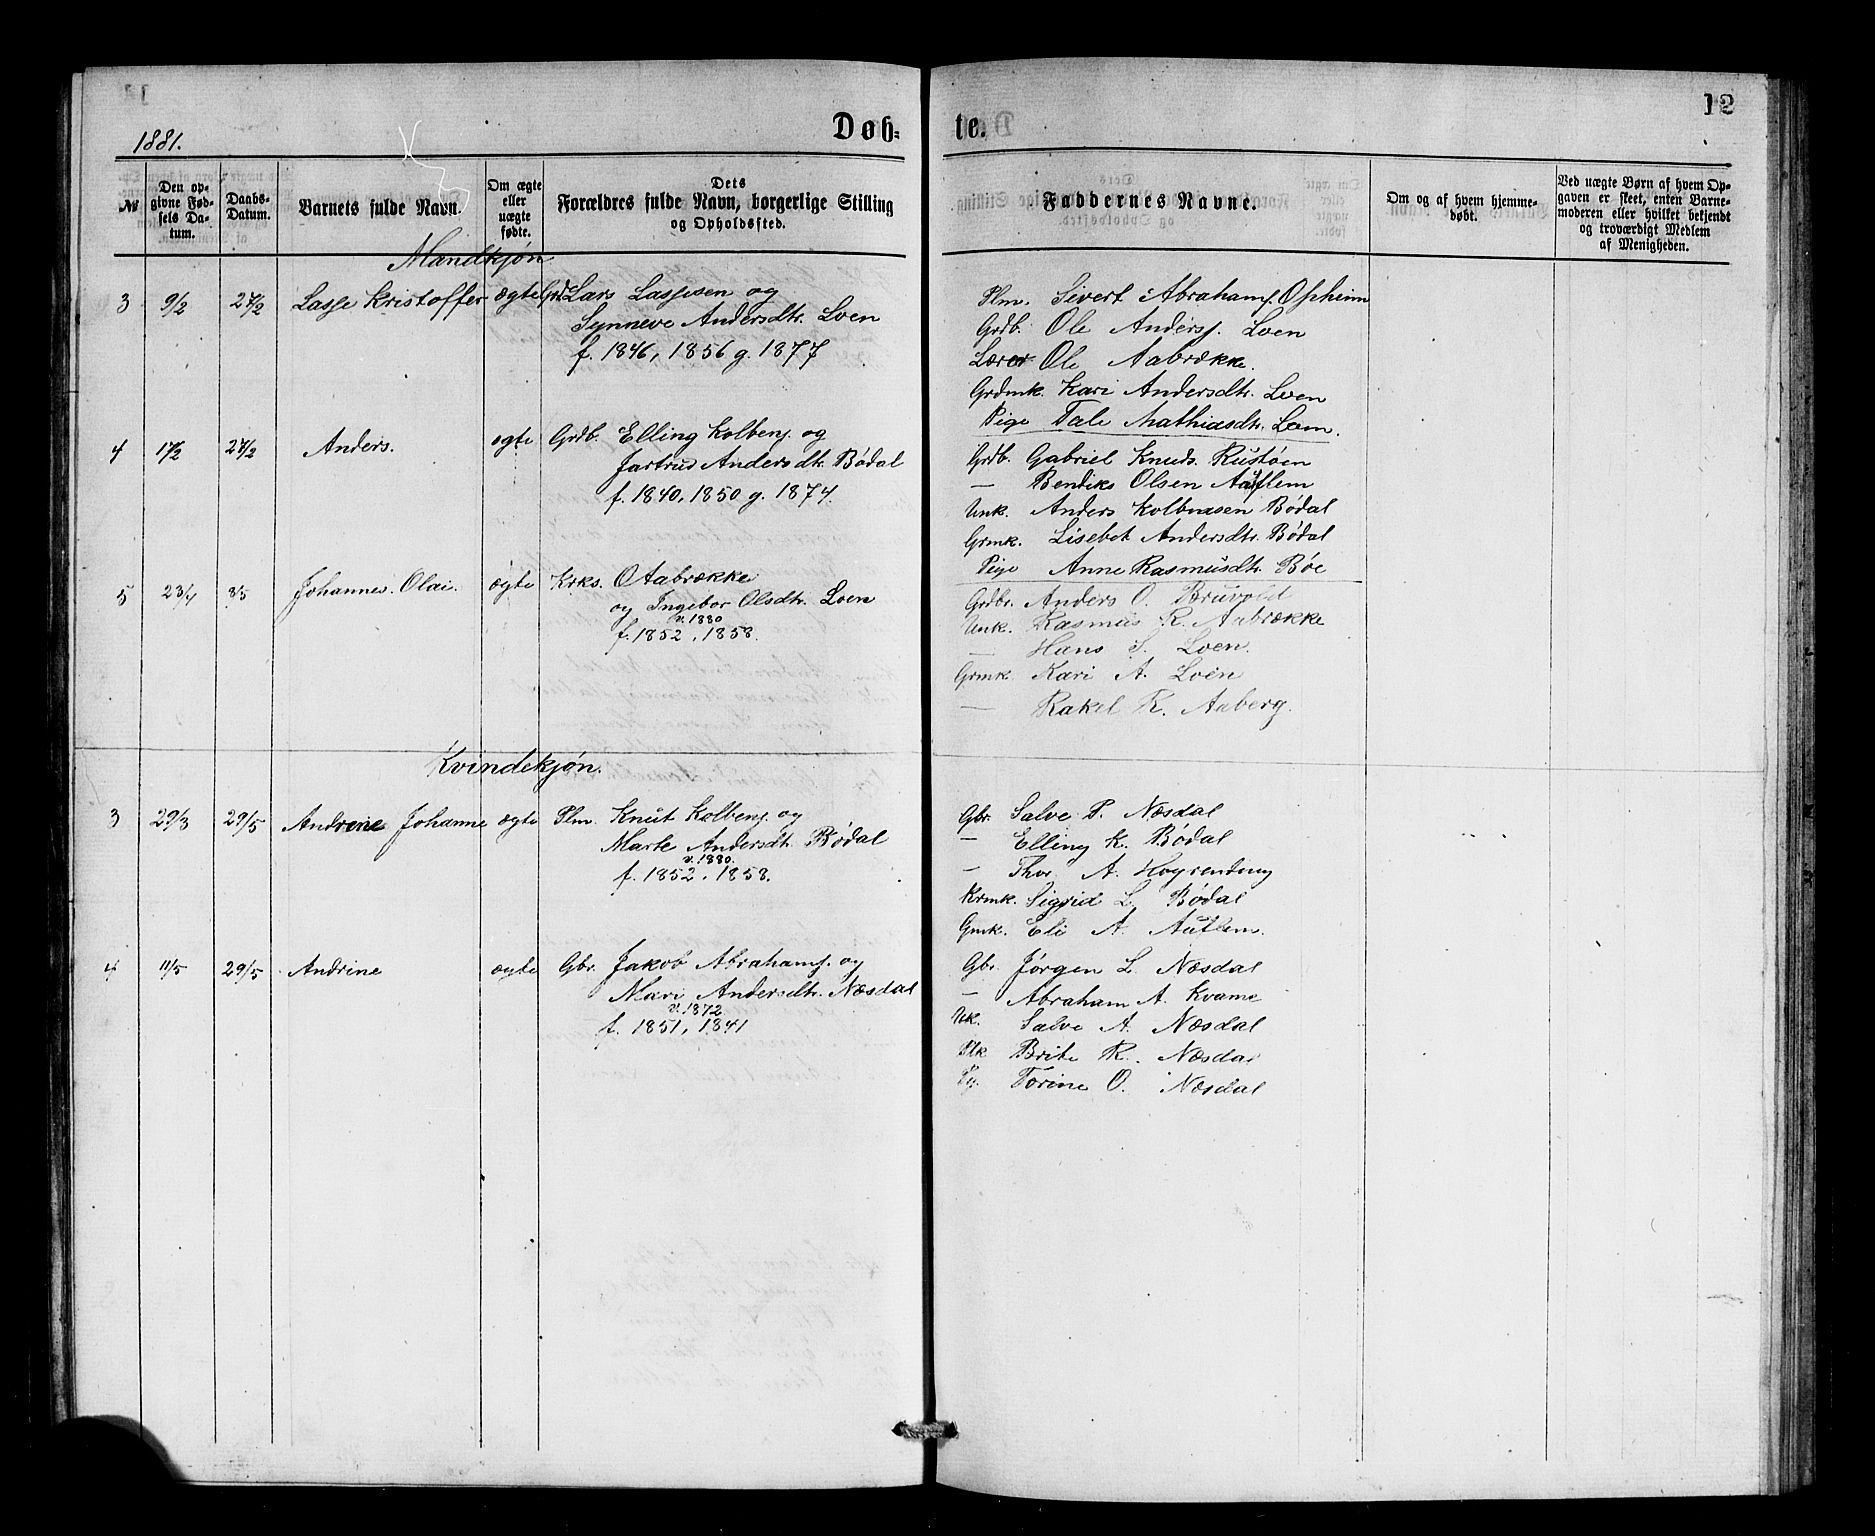 12
1881.
Døb-
te.
№
Den op-
givne Fød-
sels Da-
tum.
Daabs-
Datum.
Barnets fulde Navn.
Om ægte
eller
uægte
fødte.
Dets
Forældres fulde Navn, borgerlige Stilling
og Opholdssted.
Faddernes Navne.
Om og af hvem hjemme-
døbt.
Ved uægte Børn af hvem Op-
gaven er skeet, enten Barne-
moderen eller hvilket bekjendt
og troværdigt Medlem
af Menigheden.
Mandkjøn
3 9/2 27/2 Lasse Kristoffer ægte Grd. Lars Lassesen og
Synneve Andersdtr. Loen
f. 1846, 1856 g. 1877
Plm. Sivert Abrahams. Opheim
Grdb. Ole Anders. Loen
Lærer Ole Aabrække.
Grdmk. Kari Andersdtr. Loen
Pige Tale Mathiasdtr. Loen.
4 17/2 27/2 Anders. ægte Grdb. Elling Kolbens. og
Jartrud Andersdtr. Bødal
f. 1840, 1850 g. 1874.
Grdb. Gabriel Knuds. Rustøen
— Bendiks Olsen Auflem
Unk. Anders Kolbensen Bødal
Grmk. Lisebet Andersdtr. Bødal
Pige Anne Rasmusdtr. Bøe
5 23/4 8/5 Johannes Olai. ægte Krks. O Aabrække
og Ingebor Olsdtr. Loen
v. 1880
f. 1852, 1858.
Grdbr. Anders O. Bruvold
Unk. Rasmus R. Aabrække
— Hans S. Loen.
Grmk. Kari A. Loen
— Rakel R. Aaberg.
Kvindekjøn.
3 29/3 29/5 Andrine Johanne ægte Plm. Knut Kolbens. og
Marte Andersdtr. Bødal
v. 1880.
f. 1852, 1858.
Gbr. Salve P. Næsdal
— Elling K. Bødal
— Thor. A. Hogrending
Krmk. Sigrid L. Bødal
Gmk. Eli A. Auflem.
4 11/5 29/5 Andrine ægte Gbr. Jakob Abrahams. og
Mari Andersdtr. Næsdal
v. 1872
f. 1851, 1841
Gbr. Jørgen L. Næsdal
— Abraham A. Kvame
Uk. Salve A. Næsdal
Plk Brite R. Næsdal
Pg. Torine O. Næsdal